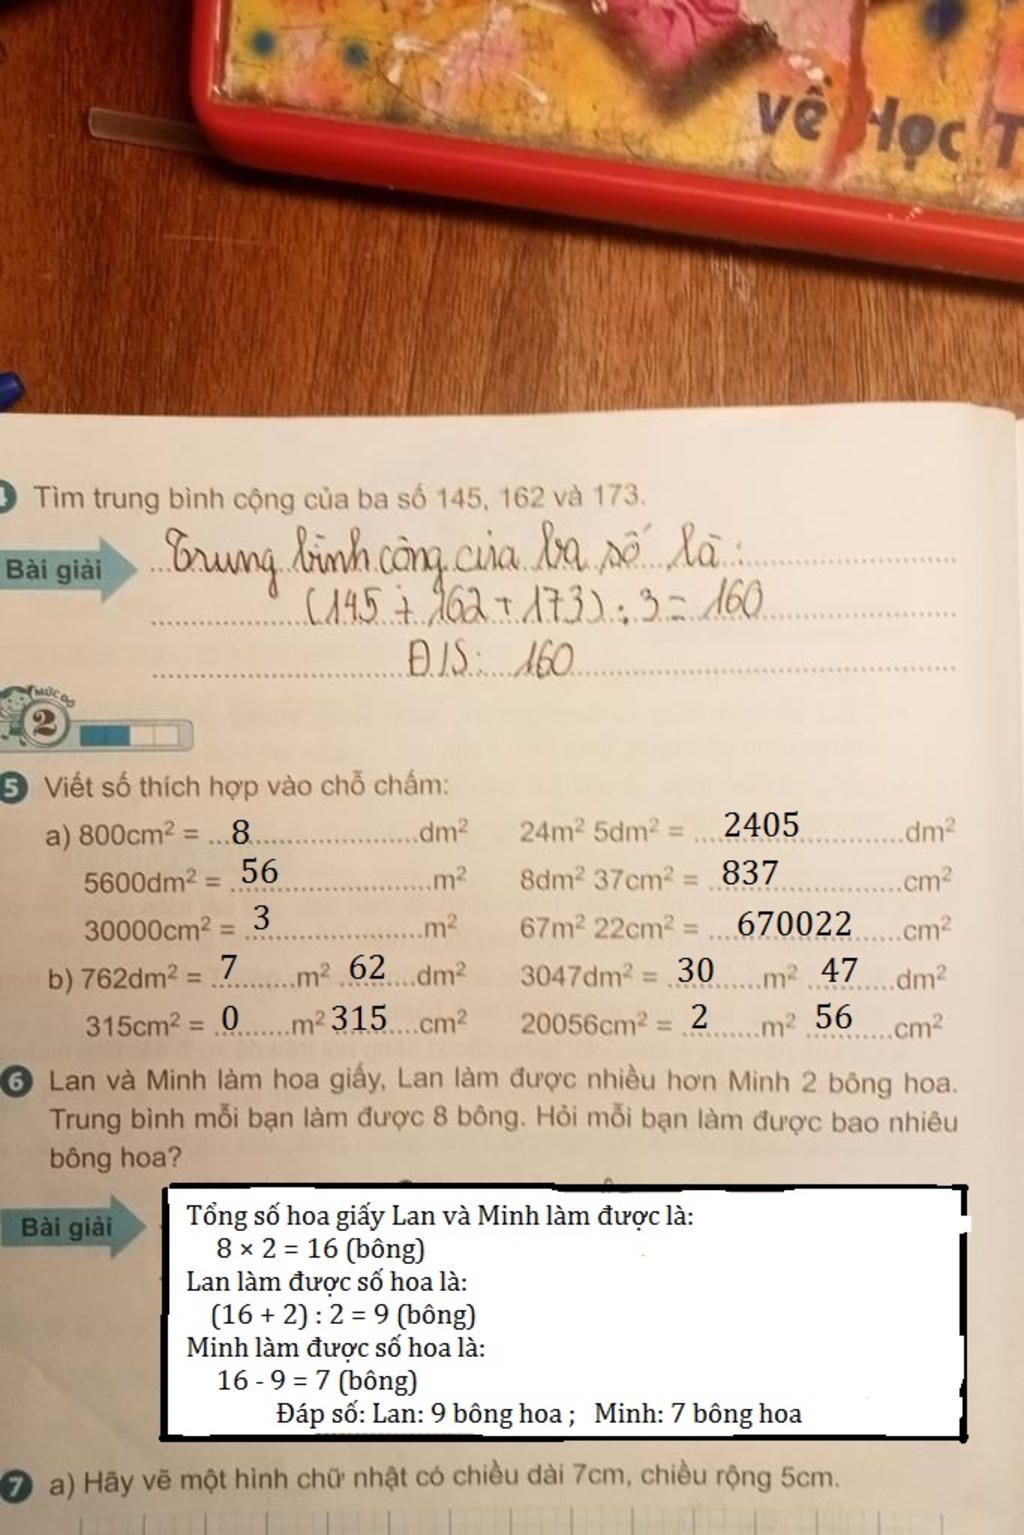 về Học T
Tìm trung bình cộng của ba số 145, 162 và 173.
Bài giải
Trung bình cộng của ba số là:
(145 + 162 + 173) : 3 = 160
Đ/S: 160
MỨC ĐỘ
2
5 Viết số thích hợp vào chỗ chấm:
a) 800cm² = ...8...................dm² 24m² 5dm² = ....2405...........dm²
5600dm² = .56....................m² 8dm² 37cm² = ..837..............cm²
30000cm² = .3....................m² 67m² 22cm² = ...670022......cm²
b) 762dm² = .7..........m² .62......dm² 3047dm² = .30.......m² ..47......dm²
315cm² = .0.......m² 315....cm² 20056cm² = ..2.......m² .56........cm²
6 Lan và Minh làm hoa giấy, Lan làm được nhiều hơn Minh 2 bông hoa.
Trung bình mỗi bạn làm được 8 bông. Hỏi mỗi bạn làm được bao nhiêu
bông hoa?
Bài giải
Tổng số hoa giấy Lan và Minh làm được là:
8 × 2 = 16 (bông)
Lan làm được số hoa là:
(16 + 2) : 2 = 9 (bông)
Minh làm được số hoa là:
16 - 9 = 7 (bông)
Đáp số: Lan: 9 bông hoa ; Minh: 7 bông hoa
7 a) Hãy vẽ một hình chữ nhật có chiều dài 7cm, chiều rộng 5cm.